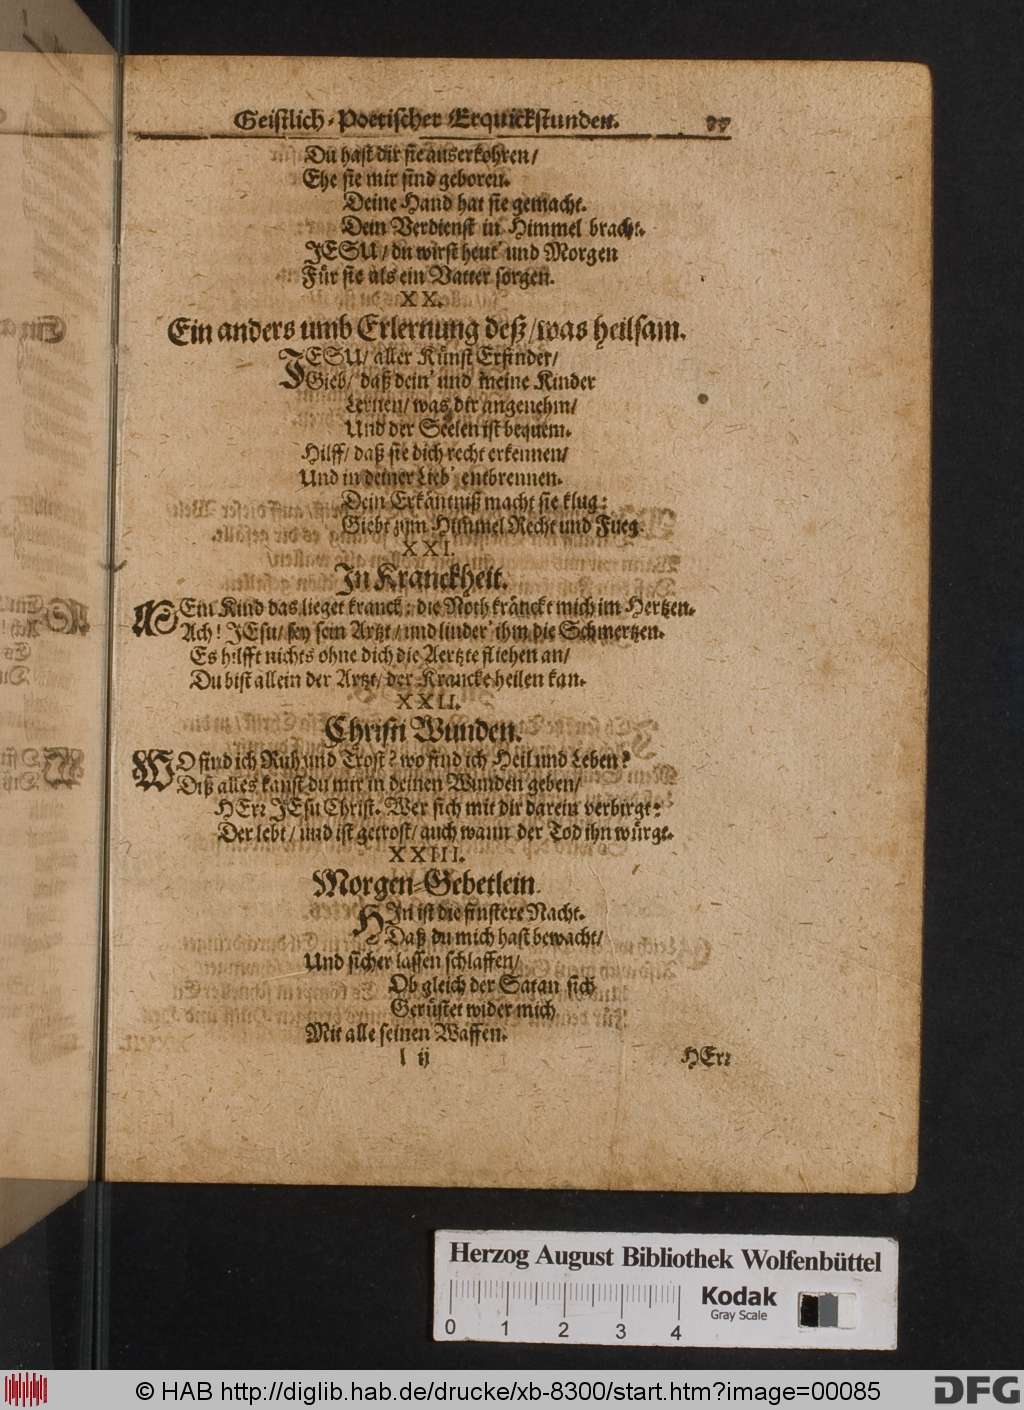 Geistlich-Poetischer Erquickstunden. 77
Du hast dir sie auserkohren/
Ehe sie mir sind geboren.
Deine Hand hat sie gemacht.
Dein Verdienst in Himmel bracht.
JESU/ du wirst heut' und Morgen
Für sie als ein Vatter sorgen.
XX.
Ein anders umb Erlernung deß/ was heilsam.
JESU/ aller Künst Erfinder/
Gieb/ daß dein' und meine Kinder
Lernen/ was dir angenehm/
Und der Seelen ist bequem.
Hilff/ daß sie dich recht erkennen/
Und in deiner Lieb' entbrennen.
Dein Erkäntniß macht sie klug:
Giebt zum Himmel Recht und Fueg.
XXI.
In Kranckheit.
MEin Kind das lieget kranck: die Noth kränckt mich im Hertzen.
Ach! JEsu/ sey sein Artzt/ und linder' ihm die Schmertzen.
Es hilfft nichts ohne dich die Aertzte fliehen an/
Du bist allein der Artzt/ der Krancke heilen kan.
XXII.
Christi Wunden.
WO find ich Ruh und Trost? wo find ich Heil und Leben?
Diß alles kanst du mir in deinen Wunden geben/
HErr JEsu Christ. Wer sich mit dir darein verbirgt:
Der lebt/ und ist getrost/ auch wann der Tod ihn würgt.
XXIII.
Morgen-Gebetlein.
HIn ist die finstere Nacht.
Daß du mich hast bewacht/
Und sicher lassen schlaffen/
Ob gleich der Satan sich
Gerüstet wider mich
Mit alle seinen Waffen.
l ij HErr
Herzog August Bibliothek Wolfenbüttel
0 1 2 3 4
Kodak
Gray Scale
© HAB http://diglib.hab.de/drucke/xb-8300/start.htm?image=00085
DFG